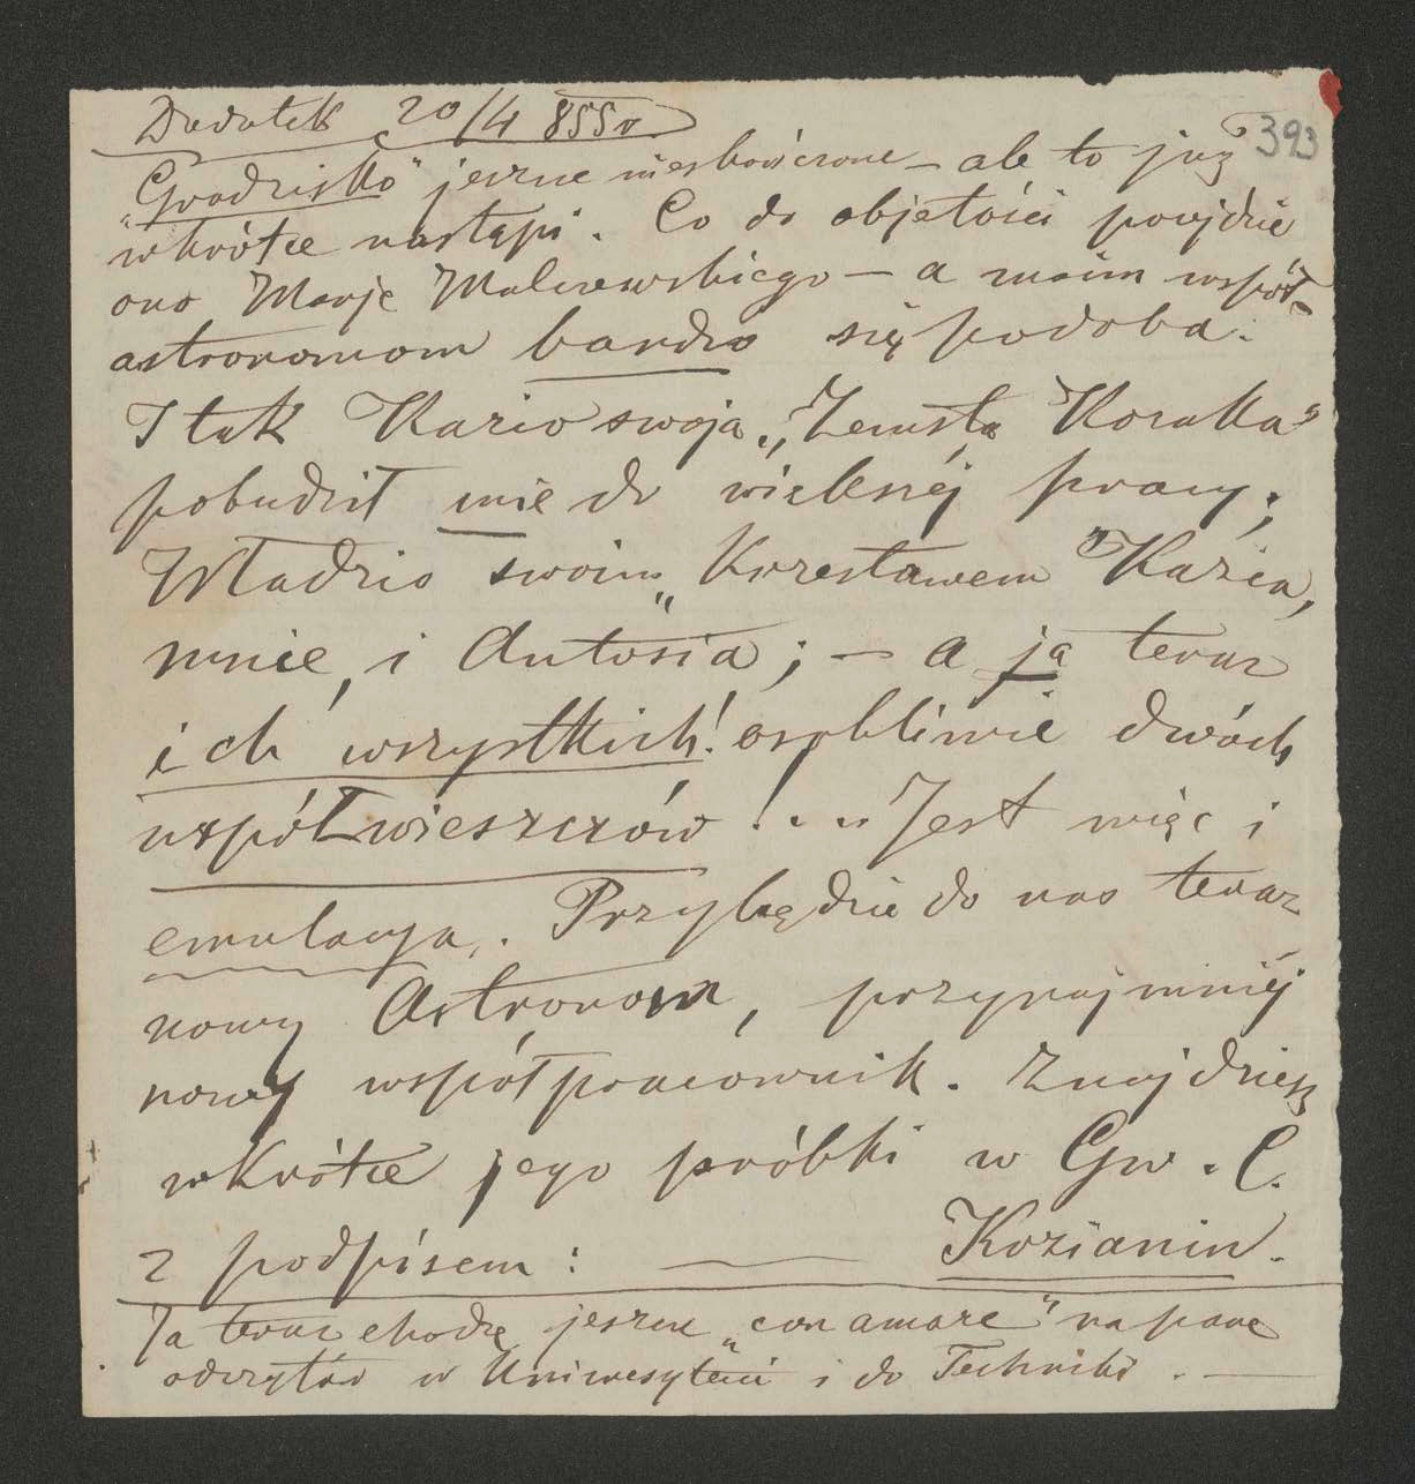 Dodatek 20/4 855 r.
393
"Grodzisko" jeszcze nieskończone — ale to już
wkrótce nastąpi. Co do objętości pójdzie
ono Marję Malczewskiego — a moim współ-
astronomom bardzo się podoba.
I tak Kazio swoją „Zemstą Kozaka"
pobudził mie do wiekszéj pracy;
Władzio swoim „Krzesławem" Kazia,
mnie, i Antosia; — a ja teraz
ich wszystkich! osobliwie dwóch
współwieszczów!... Jest więc i
emulacya. Przybędzie do nas teraz
nowy Astronom, przynajmniéj
nowy współpracownik. Znajdziesz
wkrótce jego próbki w Gw. C.
z podpisem: — Kozianin.
Ja teraz chodzę jeszcze „con amore" na parę
odczytów w Uniwesytecie i do Techniki. —